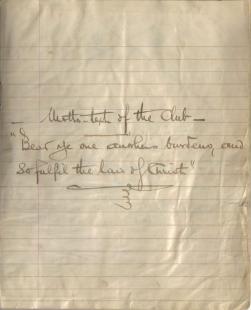 — Motto-text of the Club —
"Bear ye one another's burdens, and
so fulfil the law of Christ"